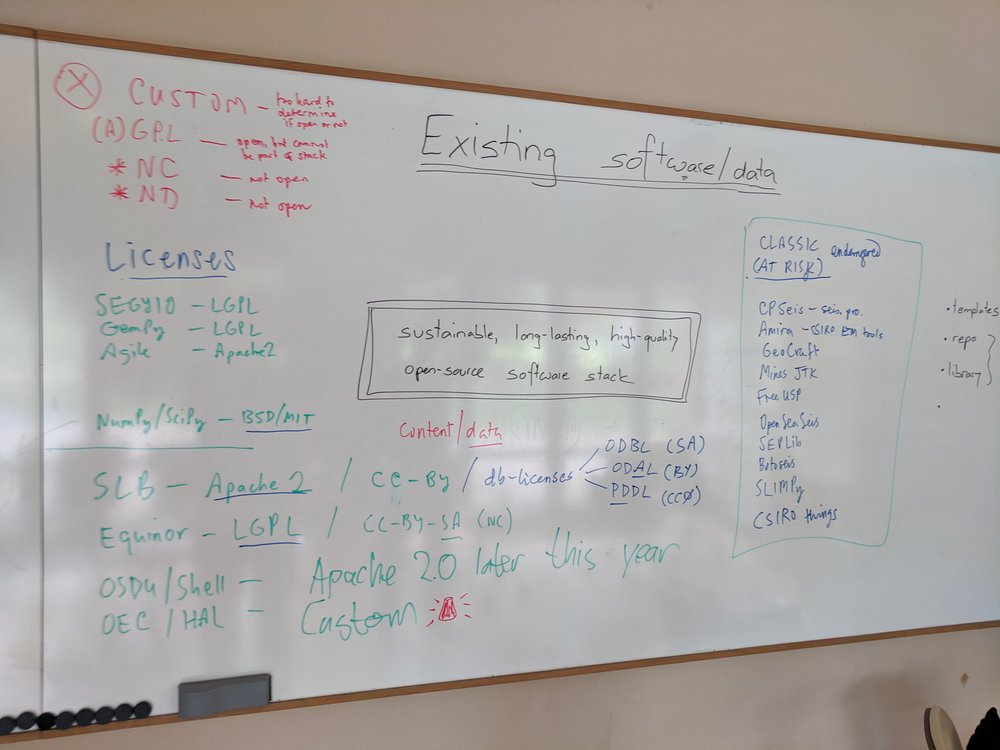 X CUSTOM – too hard to
determine
if open or not
(A)GPL — open, but cannot
be part of stack
* NC — not open
* ND — not open
Existing software/data
Licenses
SEGYIO – LGPL
GemPy – LGPL
Agile – Apache2
NumPy/SciPy – BSD/MIT
sustainable, long-lasting, high-quality
open-source software stack
Content/data
SLB – Apache 2 / CC-By / db-licenses
ODBL (SA)
ODAL (BY)
PDDL (CCØ)
Equinor – LGPL / CC-BY-SA (NC)
OSDU/Shell – Apache 2.0 later this year
OEC/HAL – Custom
CLASSIC endangered
(AT RISK)
CPSeis – seis pro.
Amira – CSIRO EM tools
GeoCraft
Mines JTK
FreeUSP
OpenSeaSeis
SEPLib
Botoseis
SLIMPy
CSIRO things
• templates
• repo
• library
•